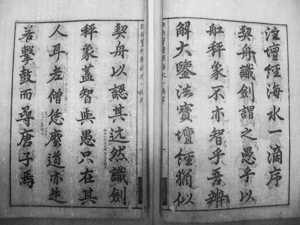 注壇經海水一滴序
契舟識劍謂之愚乎以
舡秤象不亦智乎吾辨
解大鑒法寶壇經猶似
契舟以認其迹然識劍
秤象蓋智與愚只在其
人耳老僧恁麼道亦
若擊鼓而尋唐子焉